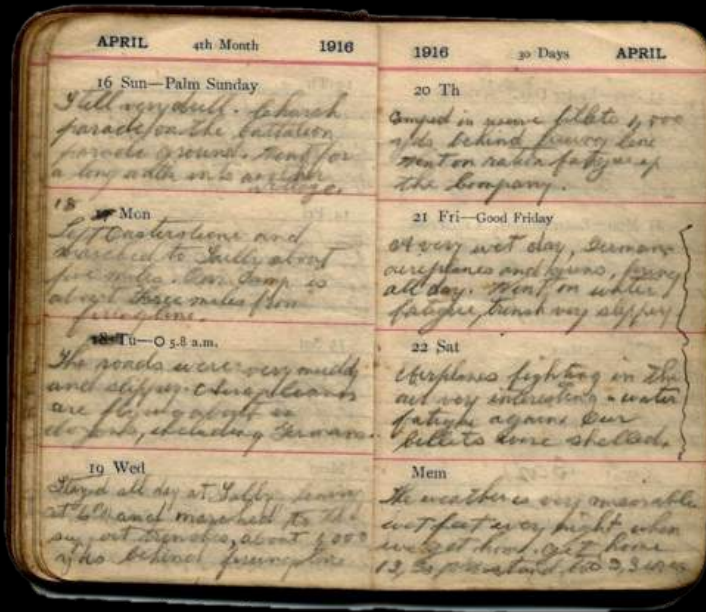 APRIL 4th Month 1916
16 Sun—Palm Sunday
Still very dull. Church
parade on the battalion
parade ground. Went for
a long walk into another
village.
18 17 Mon
Left and
marched to Sailly about
five miles. Our Camp is
about three miles from
firing line.
18 Tu—O 5.8 a.m.
The roads were very muddy
and slippy.
are flying about in
dozens, including Germans.
19 Wed
Stayed all day at Sailly
at 6 and marched to the
trenches, about 1,000
yds behind firing line
1916 30 Days APRIL
20 Th
Camped in reserve billets 1,000
yds behind firing line
Went on ration fatigue
the Company.
21 Fri—Good Friday
A very wet day, Germans
aeroplanes and guns, firing
all day. Went on water
fatigue, trench very slippery
22 Sat
Airplanes fighting in the
air very interesting water
fatigue again. Our
billets were shelled.
Mem
The weather is very miserable
wet feet every night when
we get home, get home
12,30